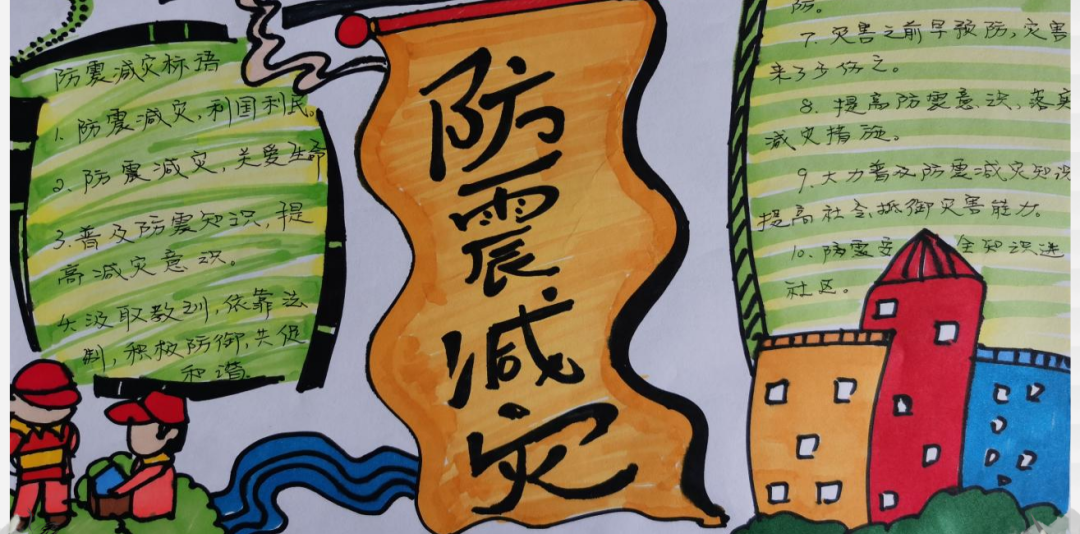 防震减灾标语
1. 防震减灾,利国利民。
2. 防震减灾,关爱生命
3. 普及防震知识,提
高减灾意识。
4. 汲取教训,依靠法
制,积极防御,共促
和谐。
防震减灾
防。
7. 灾害之前早预防,灾害
来了少伤亡。
8. 提高防震意识,落实
减灾措施。
9. 大力普及防震减灾知识
提高社会抵御灾害能力。
10. 防震安全知识进
社区。